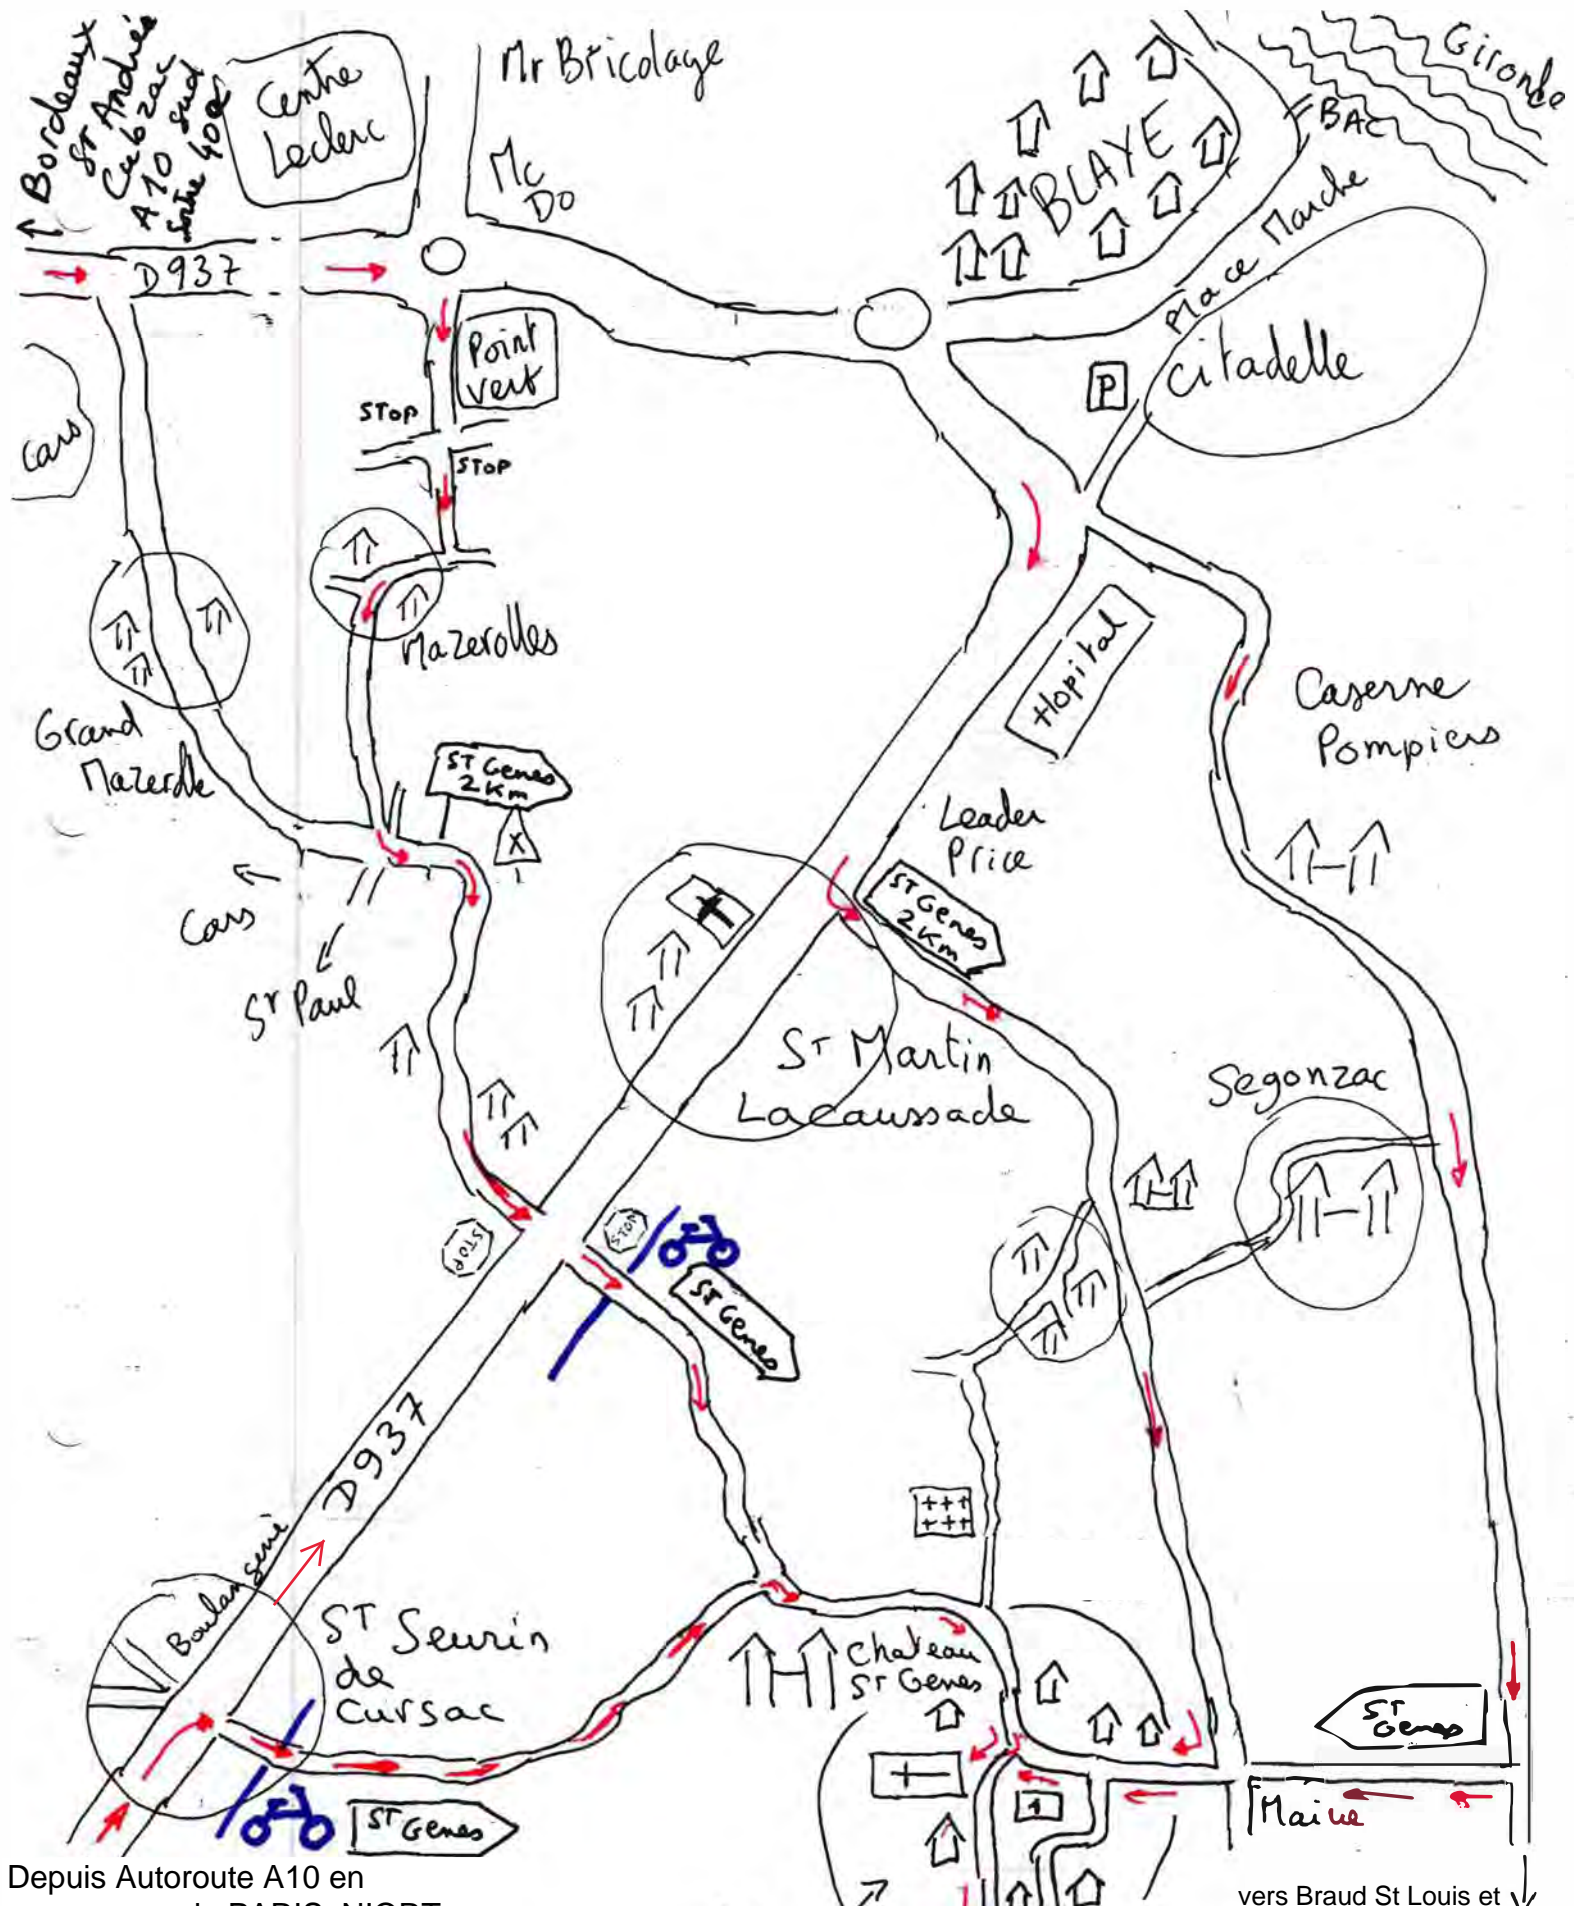 Bordeaux
St André
Cubzac
A10 sud
sortie 40a
Centre
Leclerc
Mr Bricolage
Mc
Do
BLAYE
Gironde
BAC
Place Marche
Citadelle
P
D937
Point
vert
STOP
STOP
Cars
Mazerolles
Grand
Mazerolle
ST Genes
2 Km
X
Cars
St Paul
Hopital
Caserne
Pompiers
Leader
Price
ST Genes
2 Km
ST Martin
Lacaussade
Segonzac
STOP
STOP
ST Genes
D937
Boulangerie
ST Seurin
de
Cursac
Chateau
ST Genes
ST
Genes
Mairie
ST Genes
Depuis Autoroute A10 en
PARIS NIORT
vers Braud St Louis et